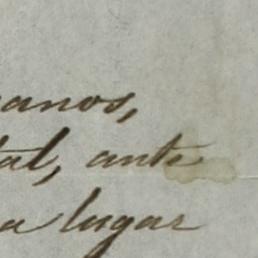 anos,
tal, ante
a lugar